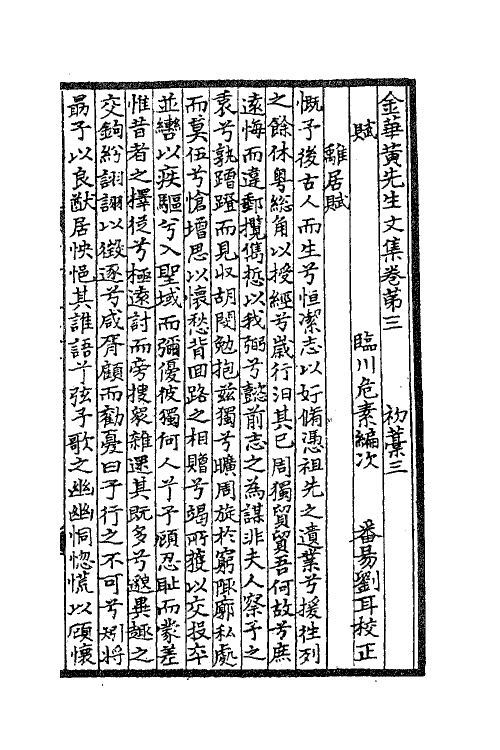 金華黃先生文集卷苐三　　初藁三
賦　　臨川危素編次　　番昜劉耳校正
離居賦
慨予後古人而生兮恒潔志以好脩憑祖先之遺業兮援徃列
之餘休粤緫角以授經兮歲行汨其已周獨貿貿吾何故兮庶
遠悔而違郵攬儁悊以我弼兮懿前志之為謀非夫人察予之
衷兮孰蹭蹬而見収胡閔勉抱兹獨兮曠周旋於窮陬廓私處
而莫伍兮愴增思以懷愁昔回路之相贈兮竭所蓛以交投卒
並轡以疾驅兮入聖域而彌優彼獨何人兮予顧忍恥而蒙差
惟昔者之擇従兮極遠討而旁搜衆雜還其既多兮邈異趣之
交鉤紛詡詡以徵逐兮咸胥顧而勸憂曰予行之不可兮烱將
朂予以良猷居怏悒其誰語兮弦予歌之幽幽恫惚慌以頎懷